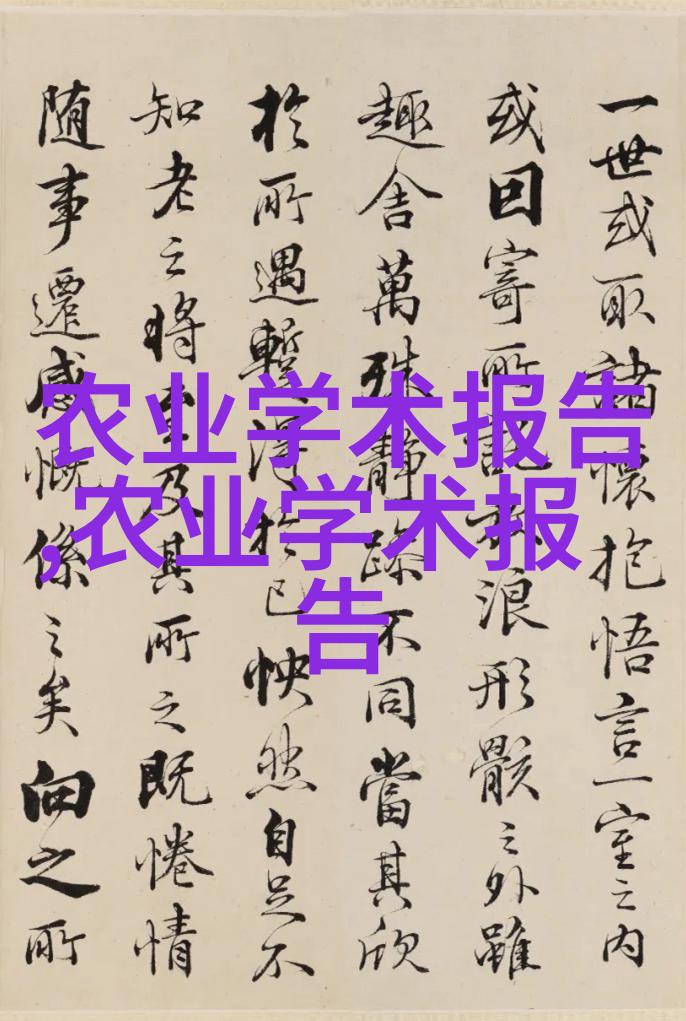 一世或取諸懷抱悟言一室之内
或因寄所託放浪形骸之外雖
趣舍萬殊静躁不同當其欣
於所遇暫得於己怏然自足不
知老之將至及其所之既惓情
随事遷感慨係之矣向之所
农业学术报告
,农业学术报
告